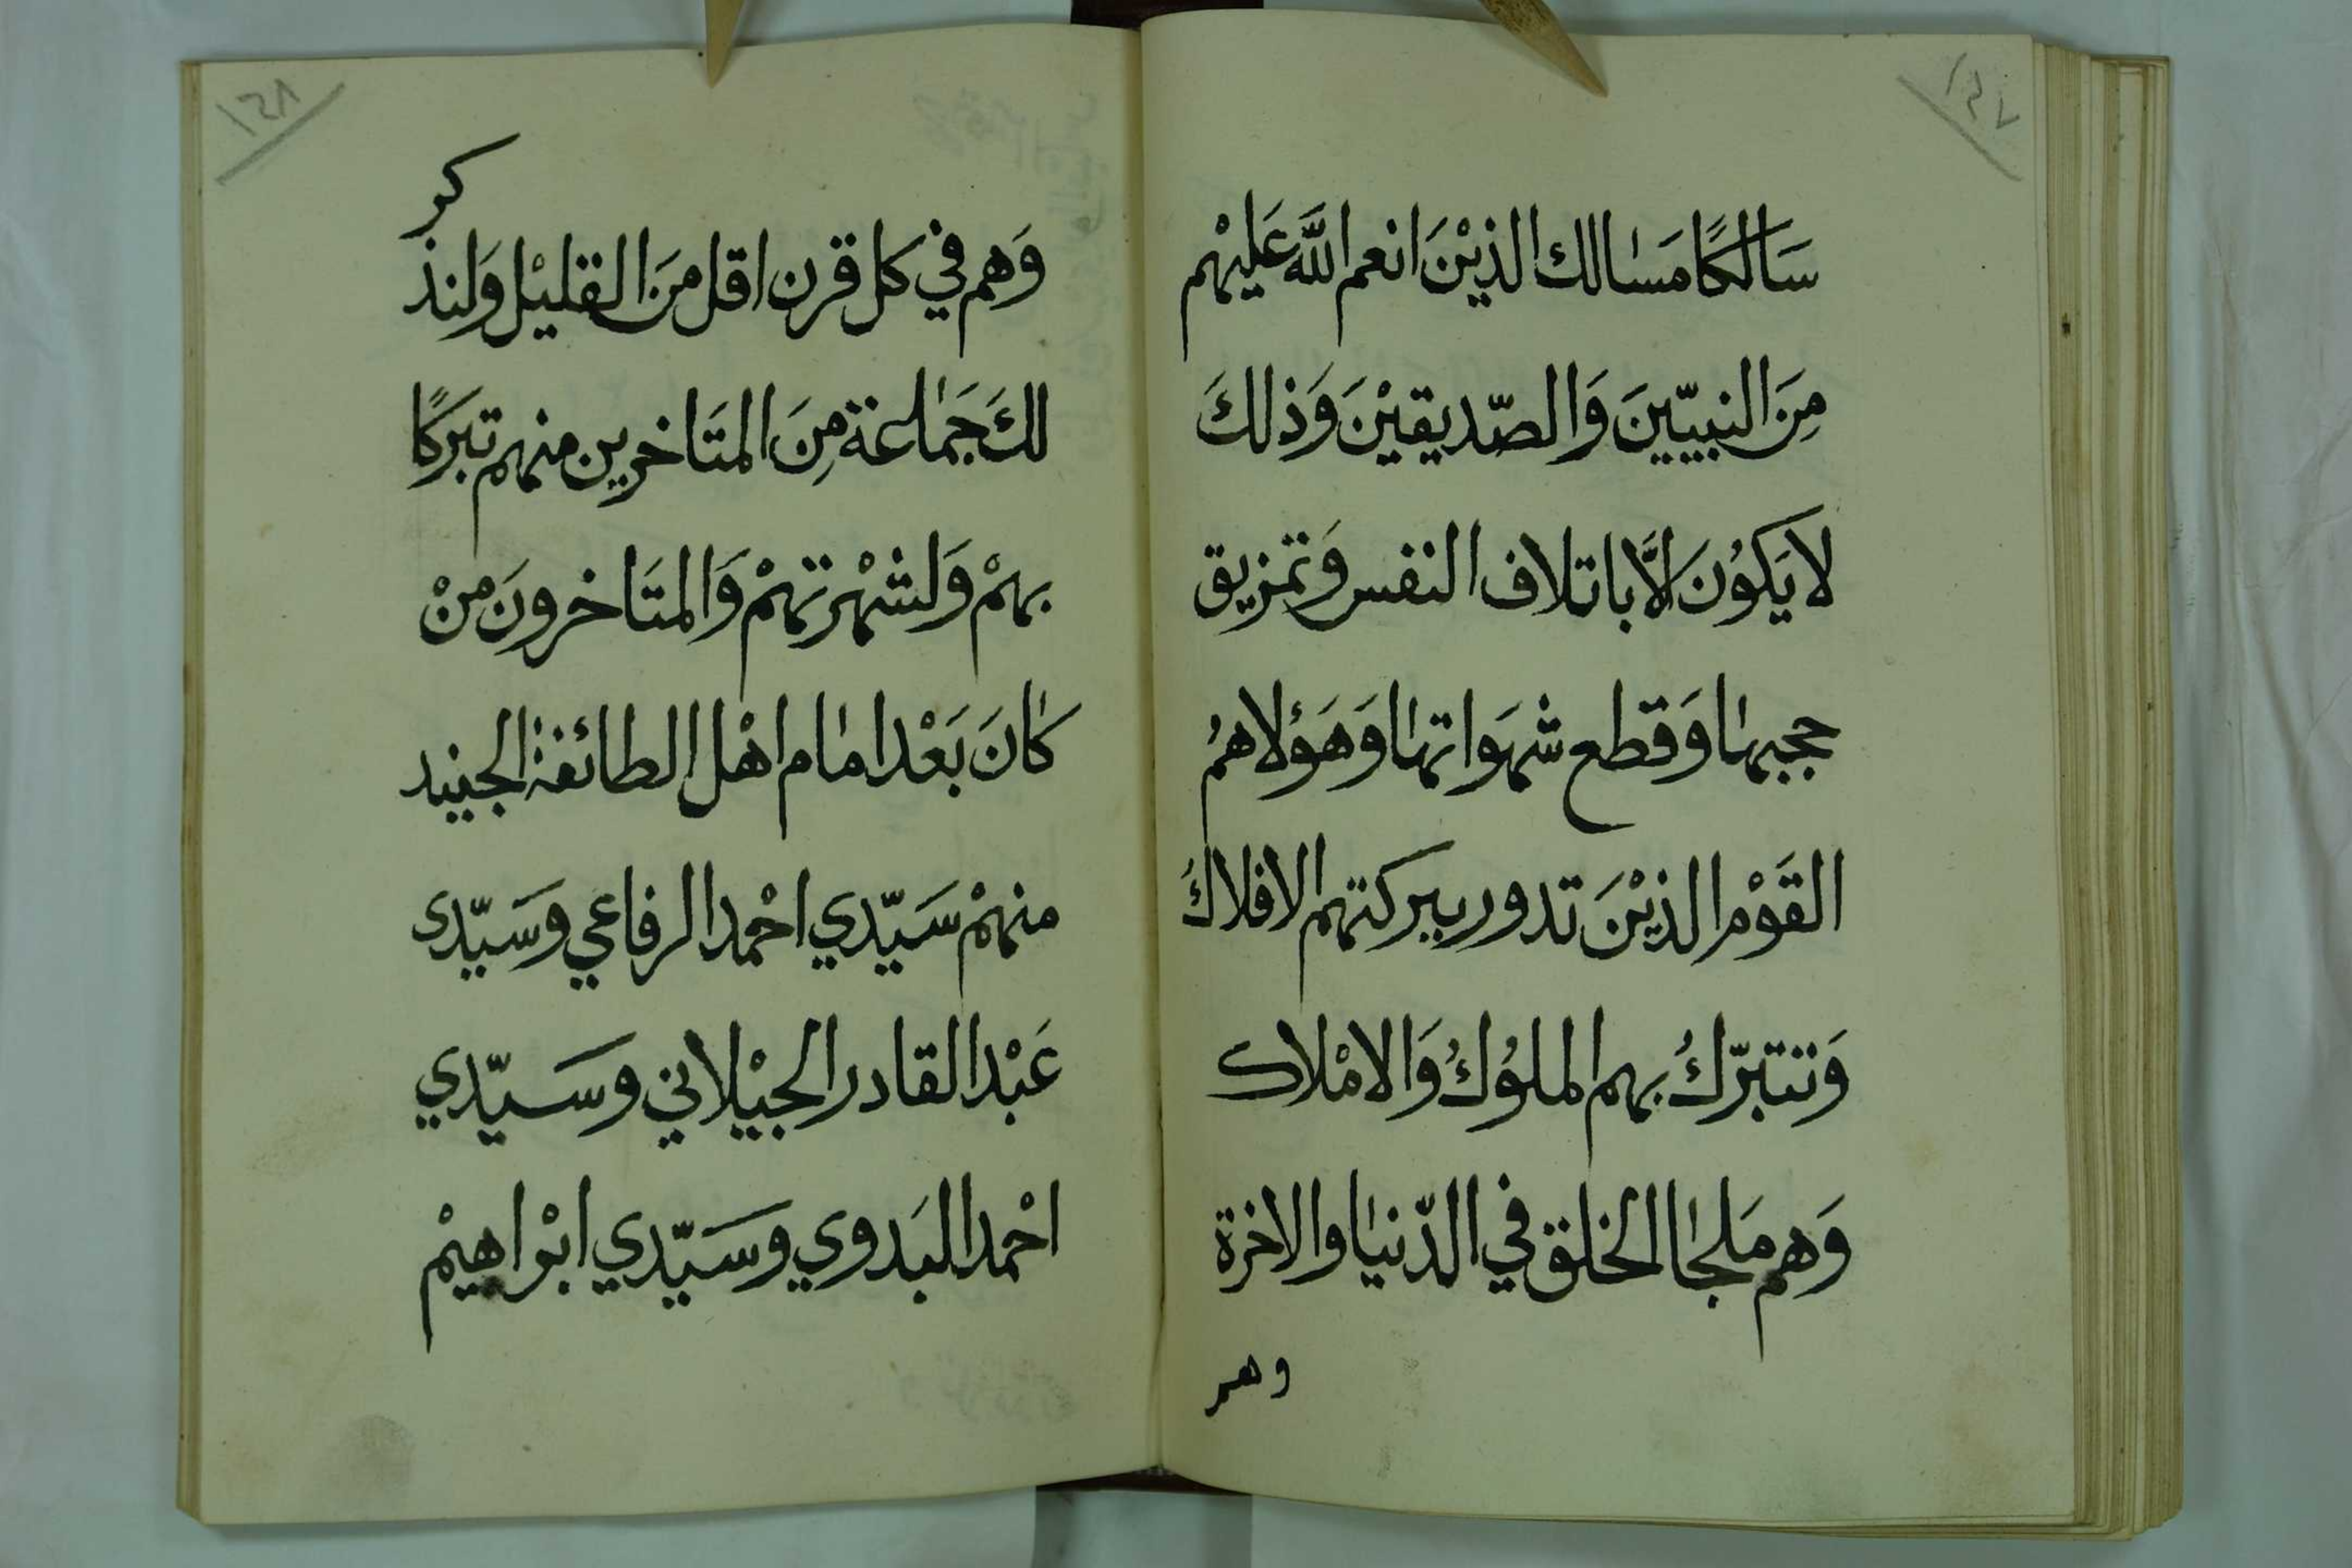 ١٤٧
سَالكًا مَسَالك الذيْنَ انعم اللَّه عَليْهم
مِنَ النبيّينَ وَالصّديقيْنَ وَذلكَ
لا يَكوُنَ الَّا باتلاف النفس وَتمزيق
حجبها وَقطع شهَواتها وَهَؤلا همُ
القَوْم الذيْنَ تدور ببركتهم الافلاكُ
وَتتبرّكُ بهم الملوُكُ وَالامْلاك
وَهم مَلجا الخلق في الدّنيا والاخرة
وهم
١٤٨
وَهم في كل قرن اقل مَنَ القليْل وَلنذ
كر
لكَ جَماعة مِنَ المتَاخرين منهم تبَركًا
بهمْ وَلشهْرتهمْ وَالمتَاخرونَ منْ
كانَ بَعْد امام اهْل الطائفة الجنيد
منهمْ سَيّدي احْمد الرفاعي وسَيّدى
عَبْد القادر الجيْلاني وسَيّدي
احْمد البَدوي وسَيّدي ابْراهيْم